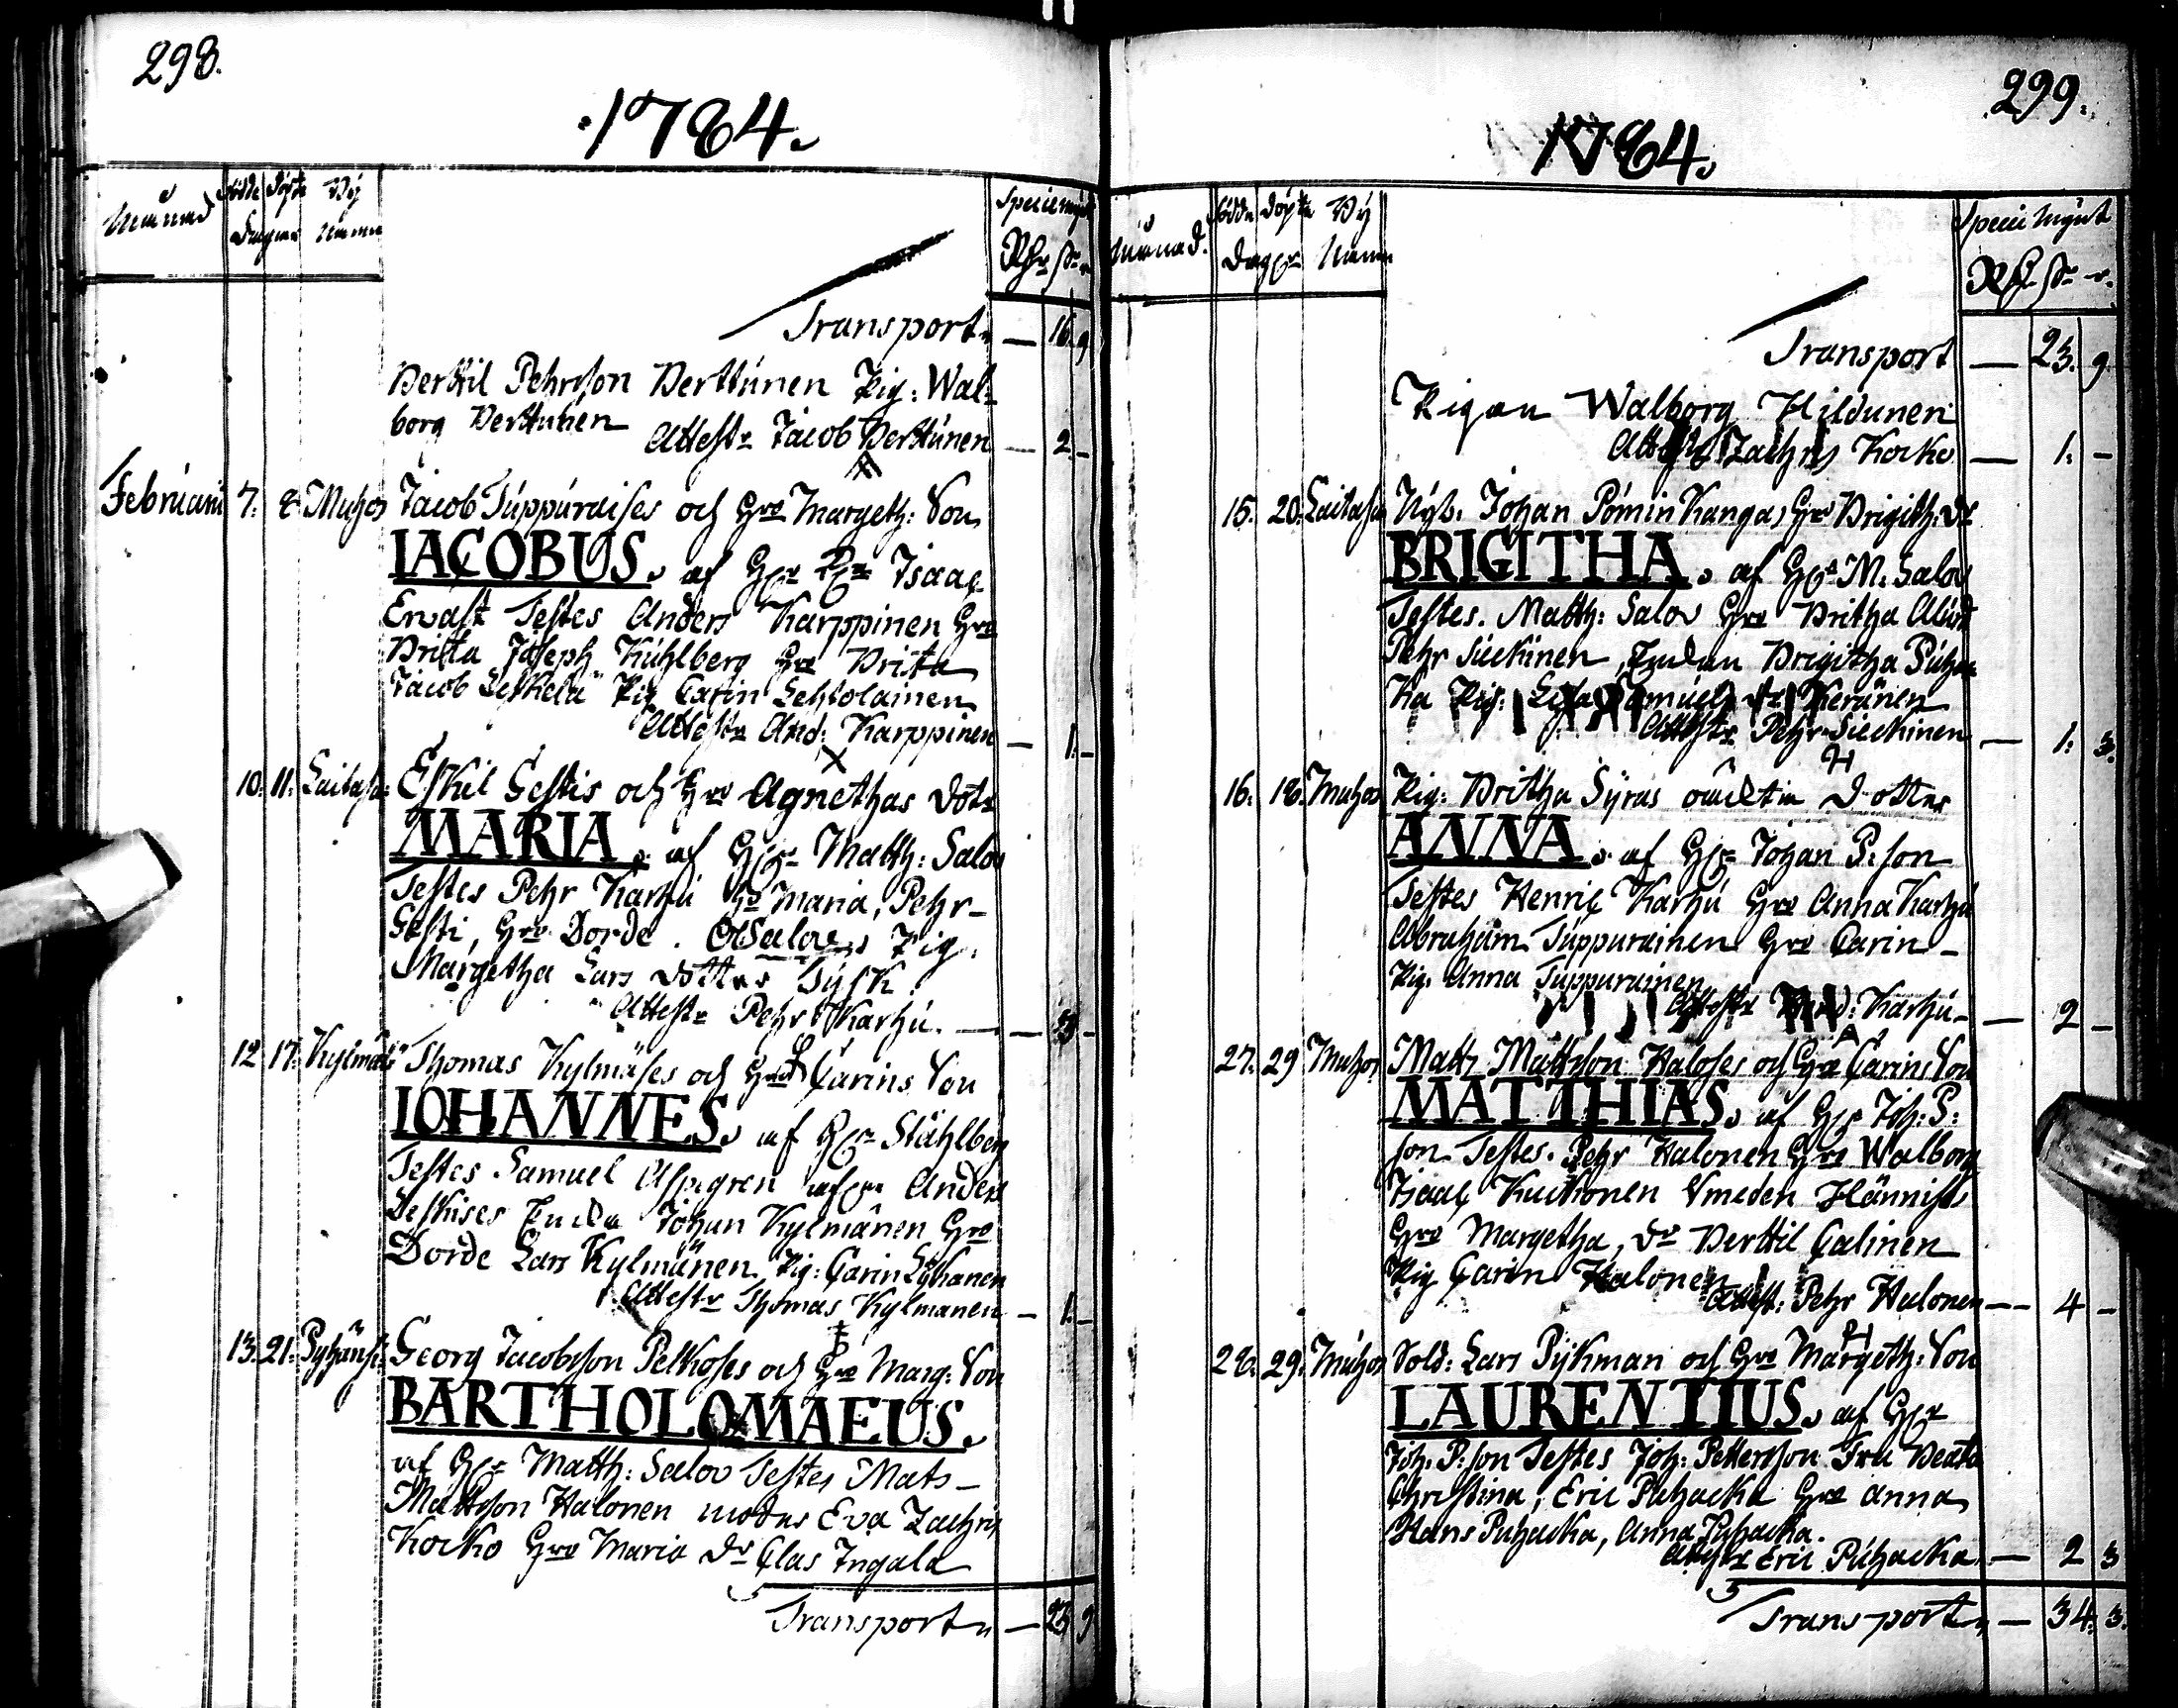 298.
1784.
Månad
Födde Döpte
Dagar
By
Namn
Specie mynt
Rdr sk. r.
Transport — 16. 9
Berttil Pehrsson Berttunen Pig: Wal-
borg Berttunen
Attestr Jacob Berttunen — 2. —
Februarii 7. 8 Muhos Jacob Tuppuraises och Hro Margeth: Son
IACOBUS. af Hr Isaac
Ervast Testes Anders Karppinen Hro
Britta Joseph Kuhlberg Hro Brita
Jacob Leskelä Pig Carin Lehtolainen
Attestr And: Karppinen — 1. —
10. 11. Laitasa: Eskil Gestis och Hro Agnethas dotr
MARIA. af Hr Matth: Salov
Testes Pehr Karhu Hro Maria, Pehr
Gesti, Hro Dorde. Pig.
Margetha Lars dotter Tysk.
Attestr Pehr Karhu. —
12 17. Kylmälä Thomas Kylmäses och Hro Carins Son
IOHANNES. af Hr Ståhlberg
Testes Samuel Aspegren Anders
Johan Kylmänen Hro
Dorde Lars Kylmänen. Pig: Carin Lyhanen
Attestr Thomas Kylmänen — 1. —
13. 21. Pyhänsi: Georg Jacobsson Pelkoses och Hro Marg: Son
BARTHOLOMAEUS.
af Hr Matth: Salov Testes Mats
Mattsson Halonen Eva Zachris
Kocko Hro Maria Dr Clas Ingala
Transport — 23 9
299.
1784.
Månad.
Födde Döpte
Dagar
By
Namn
Specie Mynt
Rdr sk. r.
Transport — 23. 9
Pigan Walborg Hildunen
Attestr Zachris Kocko — 1. —
15. 20. Laitasa Nyb. Johan Pominkangas Hro Brigith: Dr
BRIGITHA. af Hr M. Salov
Testes. Matth: Salov Hro Britha
Pehr Sieckinen, Enkan Brigitha Puhac
ka Pig: Samuels dr Keränen
Attestr Pehr Sieckinen — 1. 3.
16. 18. Muhos Pig: Britha Syras oäckta Dotter
ANNA. af Hr Johan P:son
Testes Henric Karhu Hro Anna Karhu
Abraham Tuppurainen Hro Carin
Pig. Anna Tuppurainen
Attestr Karhu — 2 —
27. 29 Muhos Matts Mattsson Haloses och Hro Carins Son
MATTHIAS. af Hr Joh: P:
son Testes. Pehr Halonen Hro Walborg
Isaac Kuckonen Smeden Hännich
Hro Margetha, Dr Berttil Calinen
Pig Carin Halonen
Attest: Pehr Halonen — 4 —
28. 29. Muhos Sold: Lars Pykman och Hro Margeth: Son
LAURENTIUS. af Hr
Joh. P:son Testes Joh: Pettersson Fru Beata
Christina, Eric Puhacka Hro Anna
Hans Puhacka, Anna Puhacka.
Attestr Eric Puhacka — 2 3
Transport — 34. 3.